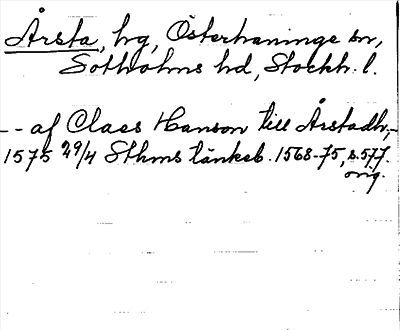 Årsta, hg, Österhaninge sn,
Sotholms hd, Stockh. l.
-- af Claes Hanson till Årstadh, -
1575 29/4 Sthms tänkeb. 1568-75, s. 577.
orig.